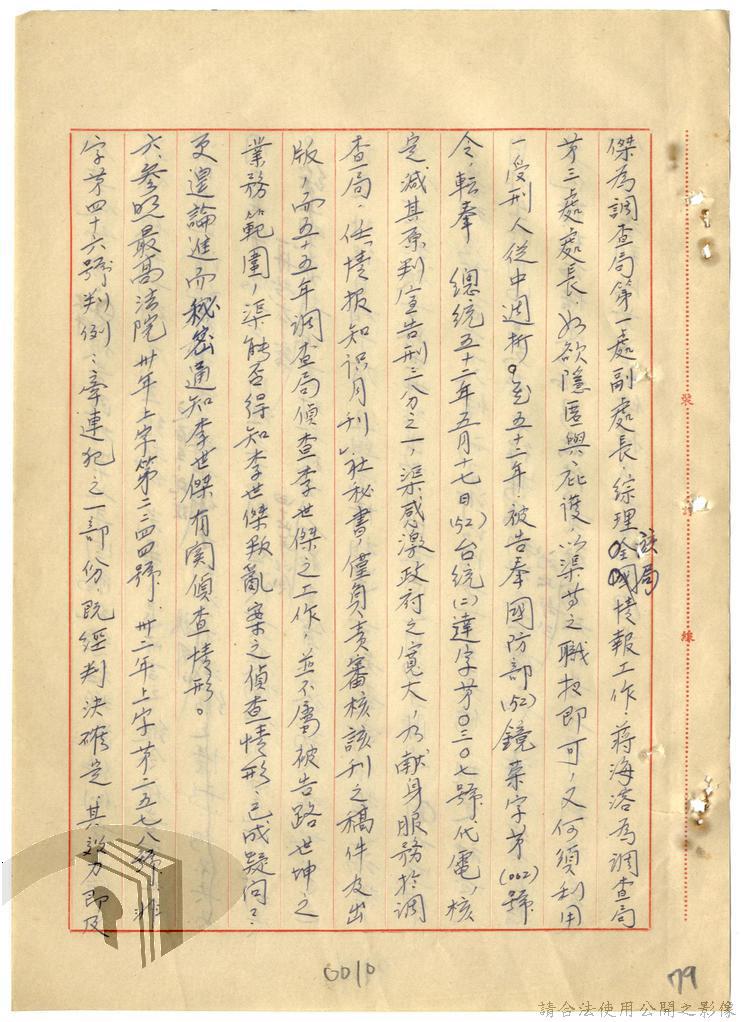 傑為調查局第一處副處長、綜理全國情報工作、蔣海溶為調查局
該局
第三處處長、如欲隱匿與庇護、以渠等之職權即可，又何須利用
一受刑人從中週折。至五十二年、被告奉國防部(52)鏡菜字第(062)號
令、転奉　總統五十二年五月十七日(52)台統(二)達字第〇三〇七號代電、核
定、減其原判宣告刑三分之一，渠感激政府之寬大，乃献身服務於調
查局、任「情报知识月刊」社秘書、僅負責審核該刊之稿件及出
版，而五十五年調查局偵查李世傑之工作、並不屬被告路世坤之
業務範圍，渠能否得知李世傑叛亂案之偵查情形、已成疑问？
更遑論進而秘密通知李世傑有関偵查情形。
六、參照最高法院卅年上字第二二四四號、卅二年上字第二五七八號、非
字第四十六號判例：牽連犯之一部份、既經判決確定、其效力即及
裝
線
0010
79
請合法使用公開之影像